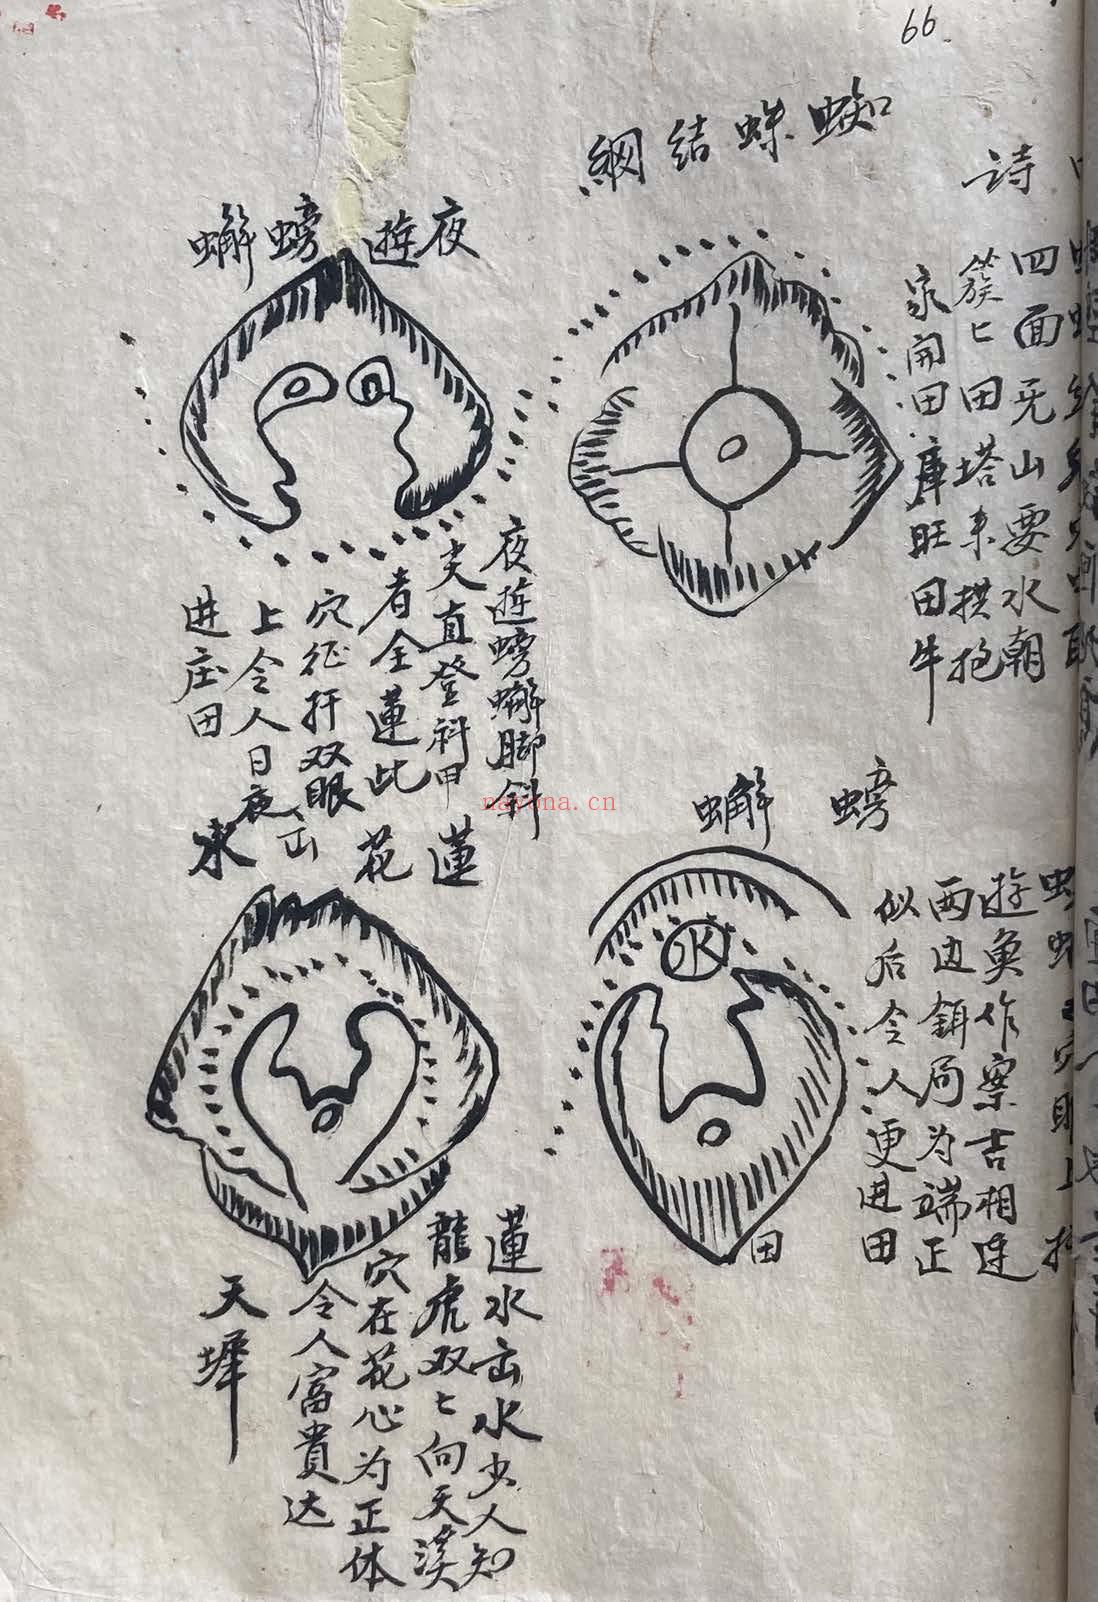 66
蜘蛛結網
詩
四面无山要水朝
簇匕田塔来拱抱
家闹田庫旺田牛
螃蠏
游魚作案吉相连
两边鉺局为端正
似后令人更进田
水
田
夜遊螃蠏
夜遊螃蠏脚斜
尖直登斜甲
者全蓮此
穴征扦双眼
上令人日夜
进庄田
蓮花出水
蓮水出水少人知
龍虎双匕向天漢
穴在花心为正体
令人富貴达
天墀
nayona.cn